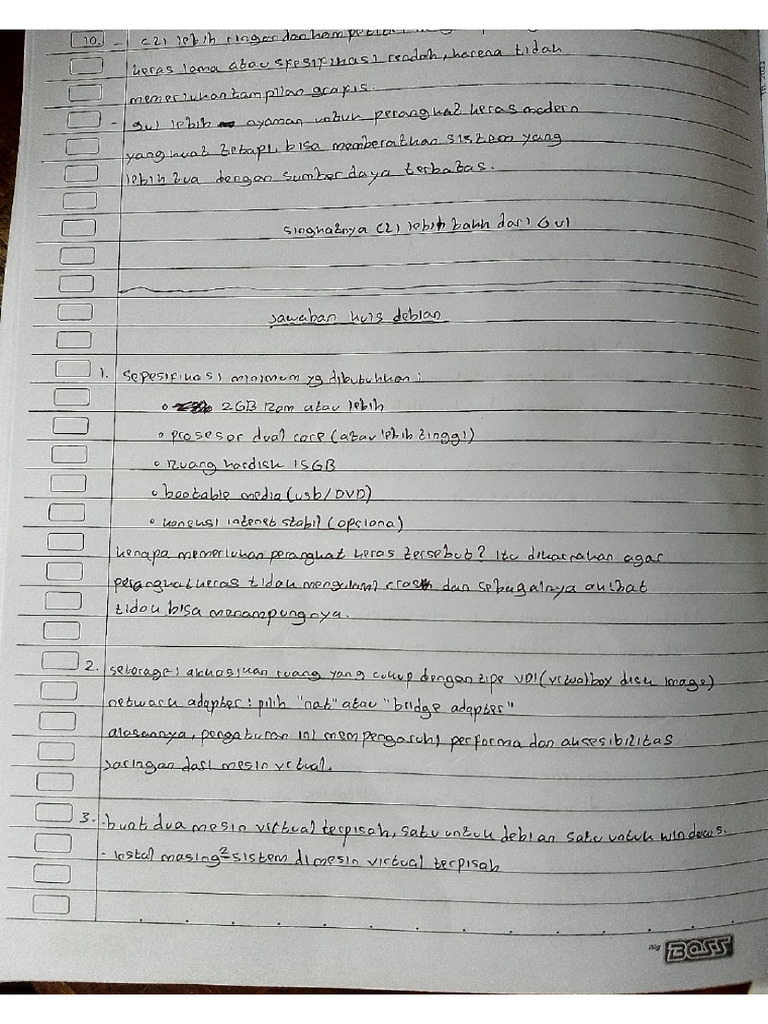 10. - CLI lebih ringan dan kompatibel
keras lama atau spesifikasi rendah, karena tidak
memerlukan tampilan grafis.
- GUI lebih nyaman untuk perangkat keras modern
yang kuat tetapi bisa memberatkan sistem yang
lebih tua dengan sumber daya terbatas.
singkatnya CLI lebih baik dari GUI
Jawaban kuis debian
1. Sepesifikasi minimum yg dibutuhkan :
2GB Ram atau lebih
prosesor dual core (atau lebih tinggi)
Ruang hardisk 15GB
bootable media (usb/DVD)
koneksi internet stabil (opsional)
kenapa memerlukan perangkat keras tersebut? itu dikarnakan agar
perangkat keras tidak mengalami crash dan sebagainya akibat
tidak bisa menampungnya.
2. setorage : alokasikan ruang yang cukup dengan tipe VDI (virtualbox disk image)
network adapter : pilih "nat" atau "bridge adapter"
alasannya, pengaturan ini mempengaruhi performa dan aksesibilitas
jaringan dari mesin virtual.
3. - buat dua mesin virtual terpisah, satu untuk debian satu untuk windows.
- instal masing² sistem di mesin virtual terpisah
Big BOSS